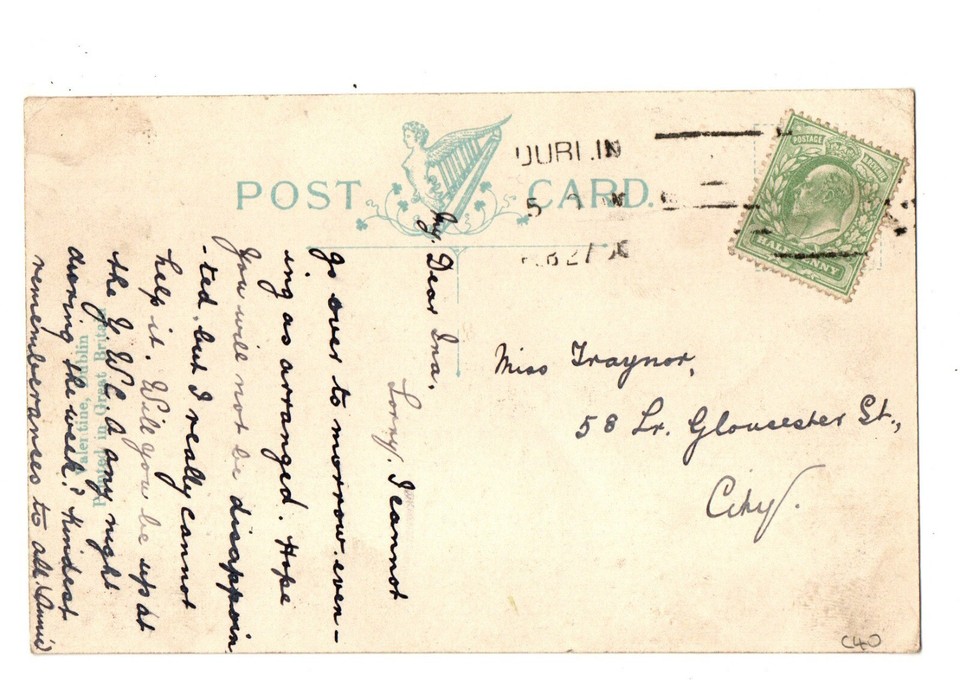 POST CARD.
DUBLIN
5
FEB 27
POSTAGE REVENUE
HALFPENNY
My Dear Ina,
Sorry. I cannot
go over to morrow even-
ing as arranged. Hope
you will not be disappoin
-ted, but I really cannot
help it. Will you be up at
the Y.W.C.A any night
during the week? Kindest
rememberanses to all Annie
Miss Traynor,
58 Lr. Gloucester St.,
City.
Valentine, Dublin
Printed in Great Britain
C40